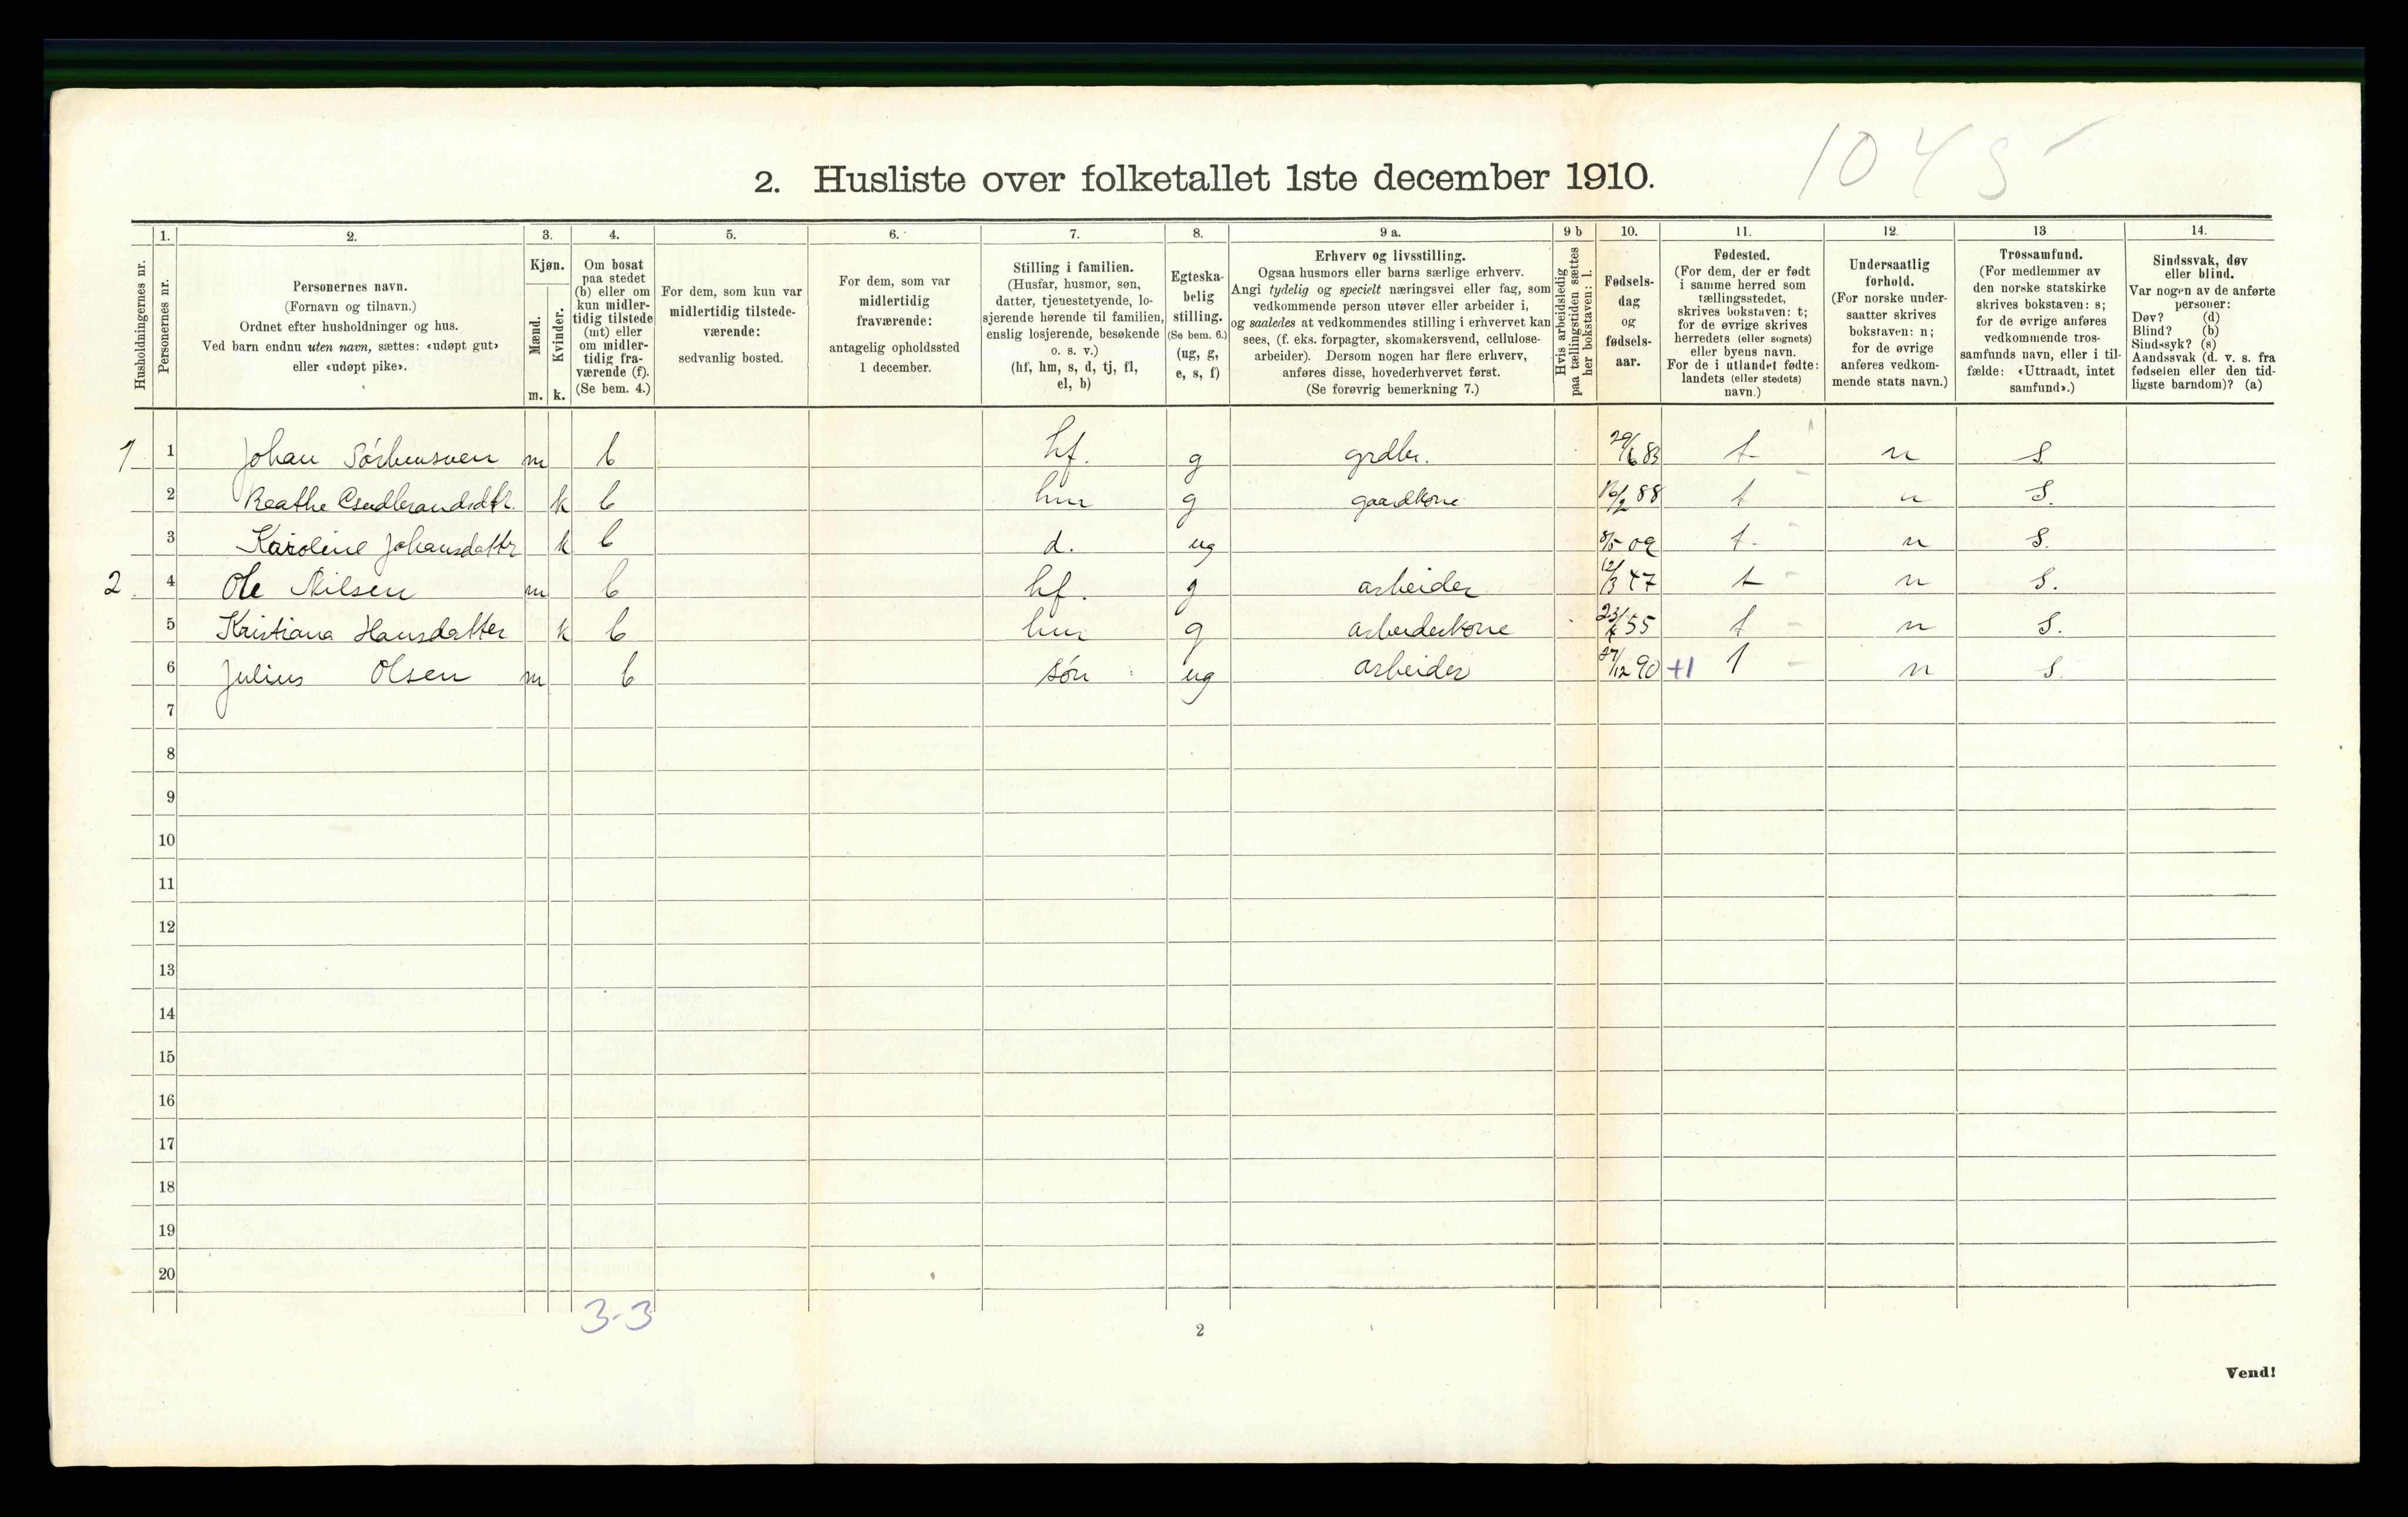 1045
2. Husliste over folketallet 1ste december 1910.
Husholdningernes nr.
1. Personernes nr.
2. Personernes navn.
(Fornavn og tilnavn.)
Ordnet efter husholdninger og hus.
Ved barn endnu uten navn, sættes: «udøpt gut»
eller «udøpt pike».
3. Kjøn.
Mænd. m.
Kvinder. k.
4. Om bosat
paa stedet
(b) eller om
kun midler-
tidig tilstede
(mt) eller
om midler-
tidig fra-
værende (f).
(Se bem. 4.)
5. For dem, som kun var
midlertidig tilstede-
værende:
sedvanlig bosted.
6. For dem, som var
midlertidig
fraværende:
antagelig opholdssted
1 december.
7. Stilling i familien.
(Husfar, husmor, søn,
datter, tjenestetyende, lo-
sjerende hørende til familien,
enslig losjerende, besøkende
o. s. v.)
(hf, hm, s, d, tj, fl,
el, b)
8. Egteska-
belig
stilling.
(Se bem. 6.)
(ug, g,
e, s, f)
9 a. Erhverv og livsstilling.
Ogsaa husmors eller barns særlige erhverv.
Angi tydelig og specielt næringsvei eller fag, som
vedkommende person utøver eller arbeider i,
og saaledes at vedkommendes stilling i erhvervet kan
sees, (f. eks. forpagter, skomakersvend, cellulose-
arbeider). Dersom nogen har flere erhverv,
anføres disse, hovederhvervet først.
(Se forøvrig bemerkning 7.)
9 b Hvis arbeidsledig
paa tællingstiden sættes
her bokstaven: l.
10. Fødsels-
dag
og
fødsels-
aar.
11. Fødested.
(For dem, der er født
i samme herred som
tællingsstedet,
skrives bokstaven: t;
for de øvrige skrives
herredets (eller sognets)
eller byens navn.
For de i utlandet fødte:
landets (eller stedets)
navn.)
12. Undersaatlig
forhold.
(For norske under-
saatter skrives
bokstaven: n;
for de øvrige
anføres vedkom-
mende stats navn.)
13 Trossamfund.
(For medlemmer av
den norske statskirke
skrives bokstaven: s;
for de øvrige anføres
vedkommende tros-
samfunds navn, eller i til-
fælde: «Uttraadt, intet
samfund».)
14. Sindssvak, døv
eller blind.
Var nogen av de anførte
personer:
Døv? (d)
Blind? (b)
Sindssyk? (s)
Aandssvak (d. v. s. fra
fødselen eller den tid-
ligste barndom)? (a)
1 1 Johan m b hf. g grdbr. 29/6 83 t n s.
2 Beathe k b hm g gaardkone 16/2 88 t n s.
3 Karoline Johansdattr k b d. ug 8/5 09 t n s.
2 4 Ole Nilsen m b hf. g arbeider 12/3 47 t n s.
5 Kristiana Hansdatter k b hm g arbeiderkone 23/ 55 t n s.
6 Julius Olsen m b søn ug arbeider 27/12 90 +1 t n s.
7
8
9
10
11
12
13
14
15
16
17
18
19
20
3-3
2
Vend!